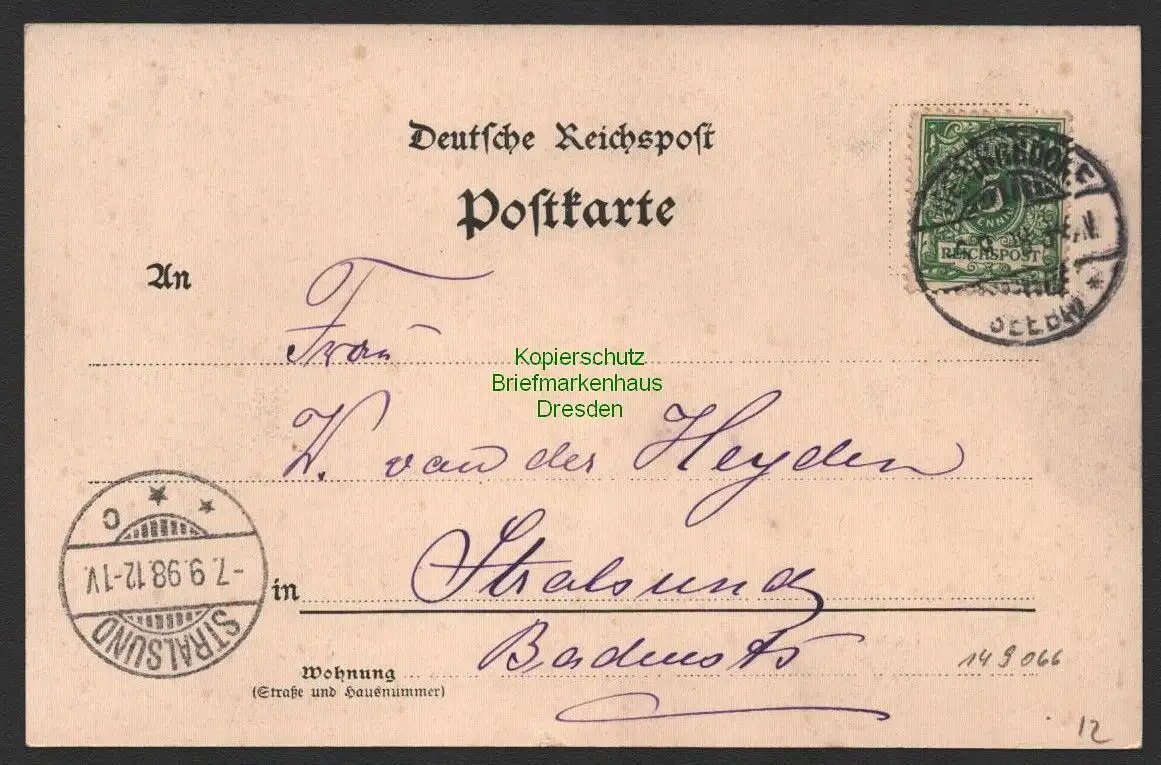 Deutsche Reichspost
Postkarte
An
5
PFENNIG
REICHSPOST
SEEBAD
Frau
Kopierschutz
Briefmarkenhaus
Dresden
W. van der Heyden
C
-7.9.98.12-1V.
STRALSUND
in Stralsund
Wohnung
(Straße und Hausnummer)
149066
12